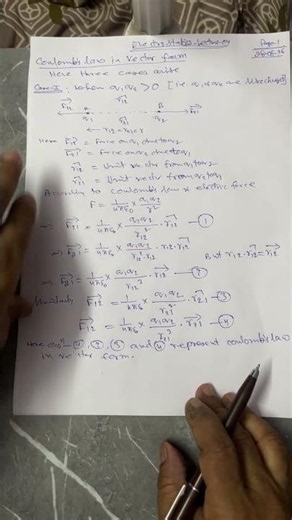 Electrostatics
Page-1
Coulomb's law in vector form
Here three cases arise
Case-I. when q₁q₂ > 0 [i.e. q₁ & q₂ are like charges]
F₁₂ A r̂₁₂ B F₂₁
q₁ q₂
r₁₂ = r₂₁ = r
Here F₁₂ = Force on q₁ due to q₂
F₂₁ = Force on q₂ due to q₁
r̂₁₂ = Unit vector from q₁ to q₂
r̂₂₁ = Unit vector from q₂ to q₁
According to coulomb's law electric force
F = 1/4πε₀ × q₁q₂/r²
⇒ F₂₁ = 1/4πε₀ × q₁q₂/r₁₂² · r̂₁₂ — ①
⇒ F₂₁ = 1/4πε₀ × q₁q₂/r₁₂²·r₁₂ · r₁₂·r̂₁₂
But r₁₂·r̂₁₂ = r₁₂
⇒ F₂₁ = 1/4πε₀ × q₁q₂/r₁₂³ · r₁₂ — ②
Similarly F₁₂ = 1/4πε₀ × q₁q₂/r₂₁² · r̂₂₁ — ③
F₁₂ = 1/4πε₀ × q₁q₂/r₂₁³ · r₂₁ — ④
Here eqn ①, ②, ③ and ④ represent coulomb's law
in vector form.